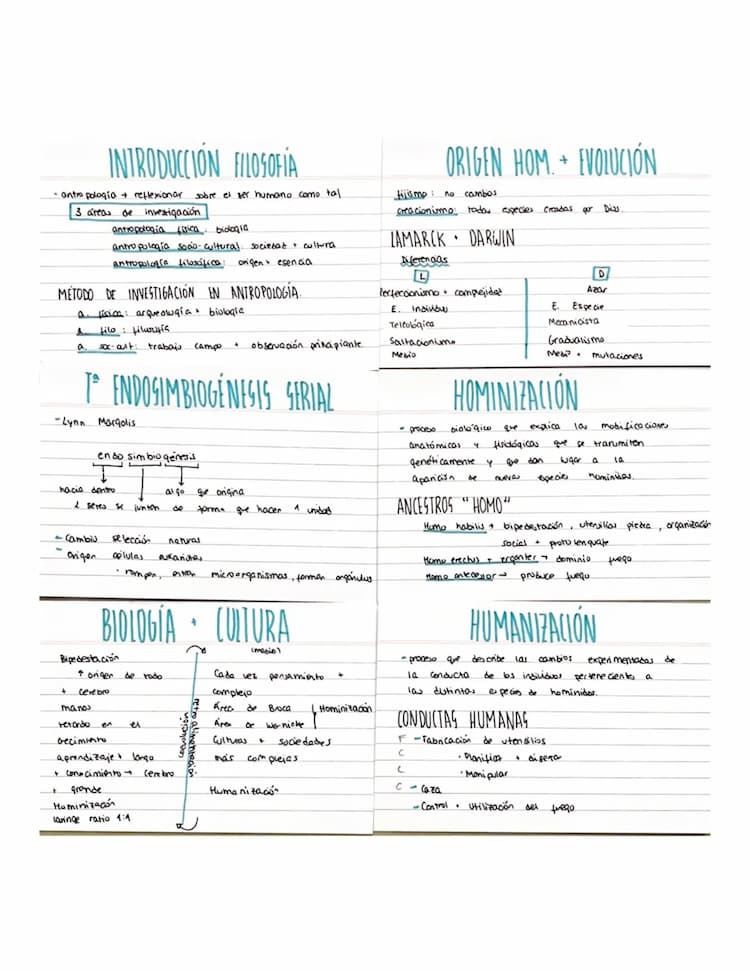 INTRODUCCIÓN FILOSOFÍA
- antropología → reflexionar sobre el ser humano como tal
3 áreas de investigación
antropología física: biología
antropología socio-cultural: sociedad + cultura
antropología filosófica: origen + esencia
MÉTODO DE INVESTIGACIÓN EN ANTROPOLOGÍA.
a. física: arqueología + biología
a. filo: filosofía
a. soc-cult: trabajo campo + observación principiante
ORIGEN HOM. + EVOLUCIÓN
Fijismo: no cambios
creacionismo: todas especies creadas por Dios.
LAMARCK + DARWIN
Diferencias
L
Perfeccionismo + complejidad
E. Individuo
Teleológica
Saltacionismo
Medio
D
Azar
E. Especie
Mecanicista
Gradualismo
Medio + mutaciones
Tª ENDOSIMBIOGÉNESIS SERIAL
- Lynn Margolis
endosimbiogénesis
hacia dentro
algo que origina
2 seres se juntan de forma que hacen 1 unidad
- Cambio selección natural
- Origen células eucariotas
· rompen, entran microorganismos, forman orgánulos
HOMINIZACIÓN
- proceso biológico que explica las modificaciones
anatómicas y fisiológicas que se transmiten
genéticamente y que dan lugar a la
aparición de nuevas especies homínidas.
ANCESTROS "HOMO"
Homo habilis → bipedestación, utensilios piedra, organización
social + protolenguaje
Homo erectus + ergaster → dominio fuego
Homo antecessor → produce fuego
BIOLOGÍA + CULTURA
Bipedestación
↑ origen de todo
+ cerebro
manos
retardo en el
crecimiento
aprendizaje + largo
+ conocimiento → cerebro
+ grande
Hominización
laringe ratio 1:1
retroalimentación
(medio)
Cada vez pensamiento +
complejo
Área de Broca
Área de Wernicke
Hominización
Culturas + sociedades
más complejas
Humanización
HUMANIZACIÓN
- proceso que describe los cambios experimentados de
la conducta de los individuos perteneciente a
las distintas especies de homínidos.
CONDUCTAS HUMANAS
F - Fabricación de utensilios
C · Planificar + diseñar
L · Manipular
C - Caza
- Control + utilización del fuego